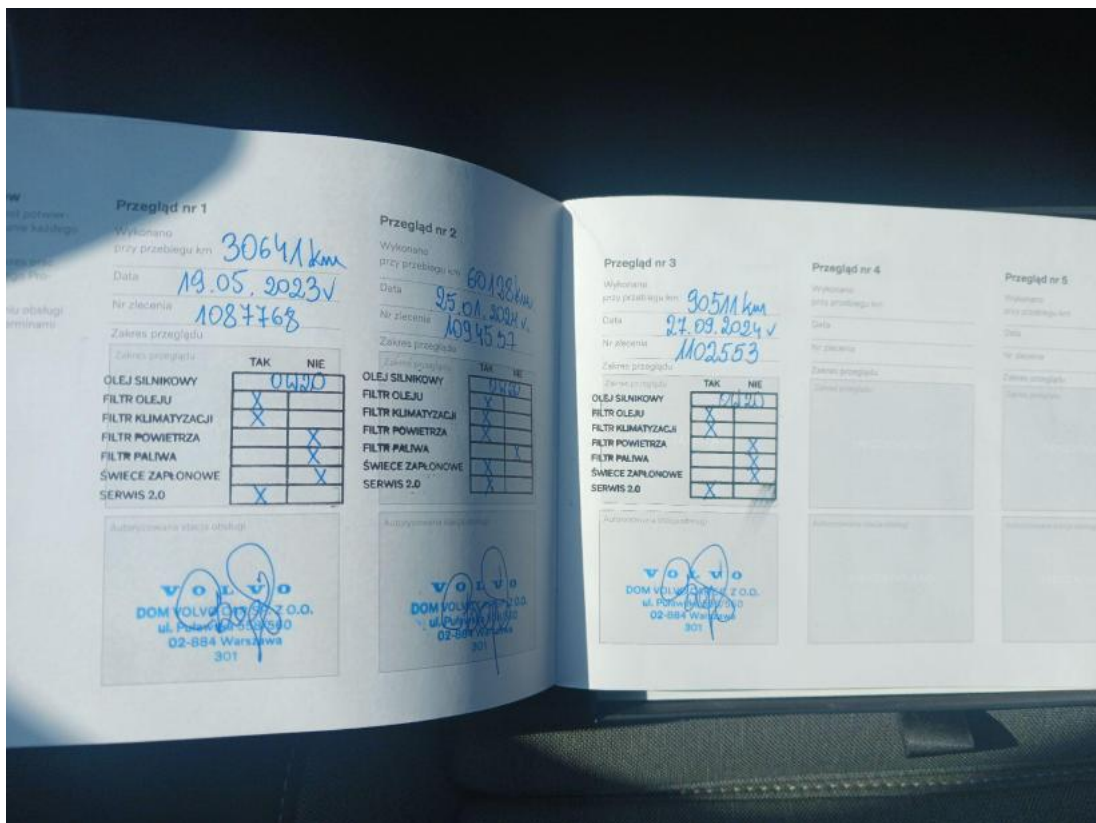 Przegląd nr 1
Wykonano
przy przebiegu km 30641 km
Data 19.05.2023r
Nr zlecenia 1087768
Zakres przeglądu
Zakres przeglądu
TAK NIE
OLEJ SILNIKOWY 0W20
FILTR OLEJU X
FILTR KLIMATYZACJI X
FILTR POWIETRZA X
FILTR PALIWA X
ŚWIECE ZAPŁONOWE X
SERWIS 2.0 X
Autoryzowana stacja obsługi
VOLVO
DOM VOLVO Z O.O.
ul. Puławska 558/560
02-884 Warszawa
301
Przegląd nr 2
Wykonano
przy przebiegu km km
Data 25.01.2024r.
Nr zlecenia 1094557
Zakres przeglądu
Zakres przeglądu
TAK NIE
OLEJ SILNIKOWY 0W20
FILTR OLEJU X
FILTR KLIMATYZACJI X
FILTR POWIETRZA X
FILTR PALIWA X
ŚWIECE ZAPŁONOWE X
SERWIS 2.0 X
Autoryzowana stacja obsługi
VOLVO
DOM VOLVO Z O.O.
ul. Puławska
02-884 Warszawa
301
Przegląd nr 3
Wykonano
przy przebiegu km 90511 km
Data 27.09.2024r
Nr zlecenia 1102553
Zakres przeglądu
Zakres przeglądu
TAK NIE
OLEJ SILNIKOWY 0W20
FILTR OLEJU X
FILTR KLIMATYZACJI X
FILTR POWIETRZA X
FILTR PALIWA X
ŚWIECE ZAPŁONOWE X
SERWIS 2.0 X
Autoryzowana stacja obsługi
VOLVO
DOM VOLVO Z O.O.
ul. Puławska
02-884 Warszawa
301
Przegląd nr 4
Wykonano
przy przebiegu km
Data
Nr zlecenia
Zakres przeglądu
Zakres przeglądu
Przegląd nr 5
Wykonano
przy przebiegu km
Data
Nr zlecenia
Zakres przeglądu
Zakres przeglądu